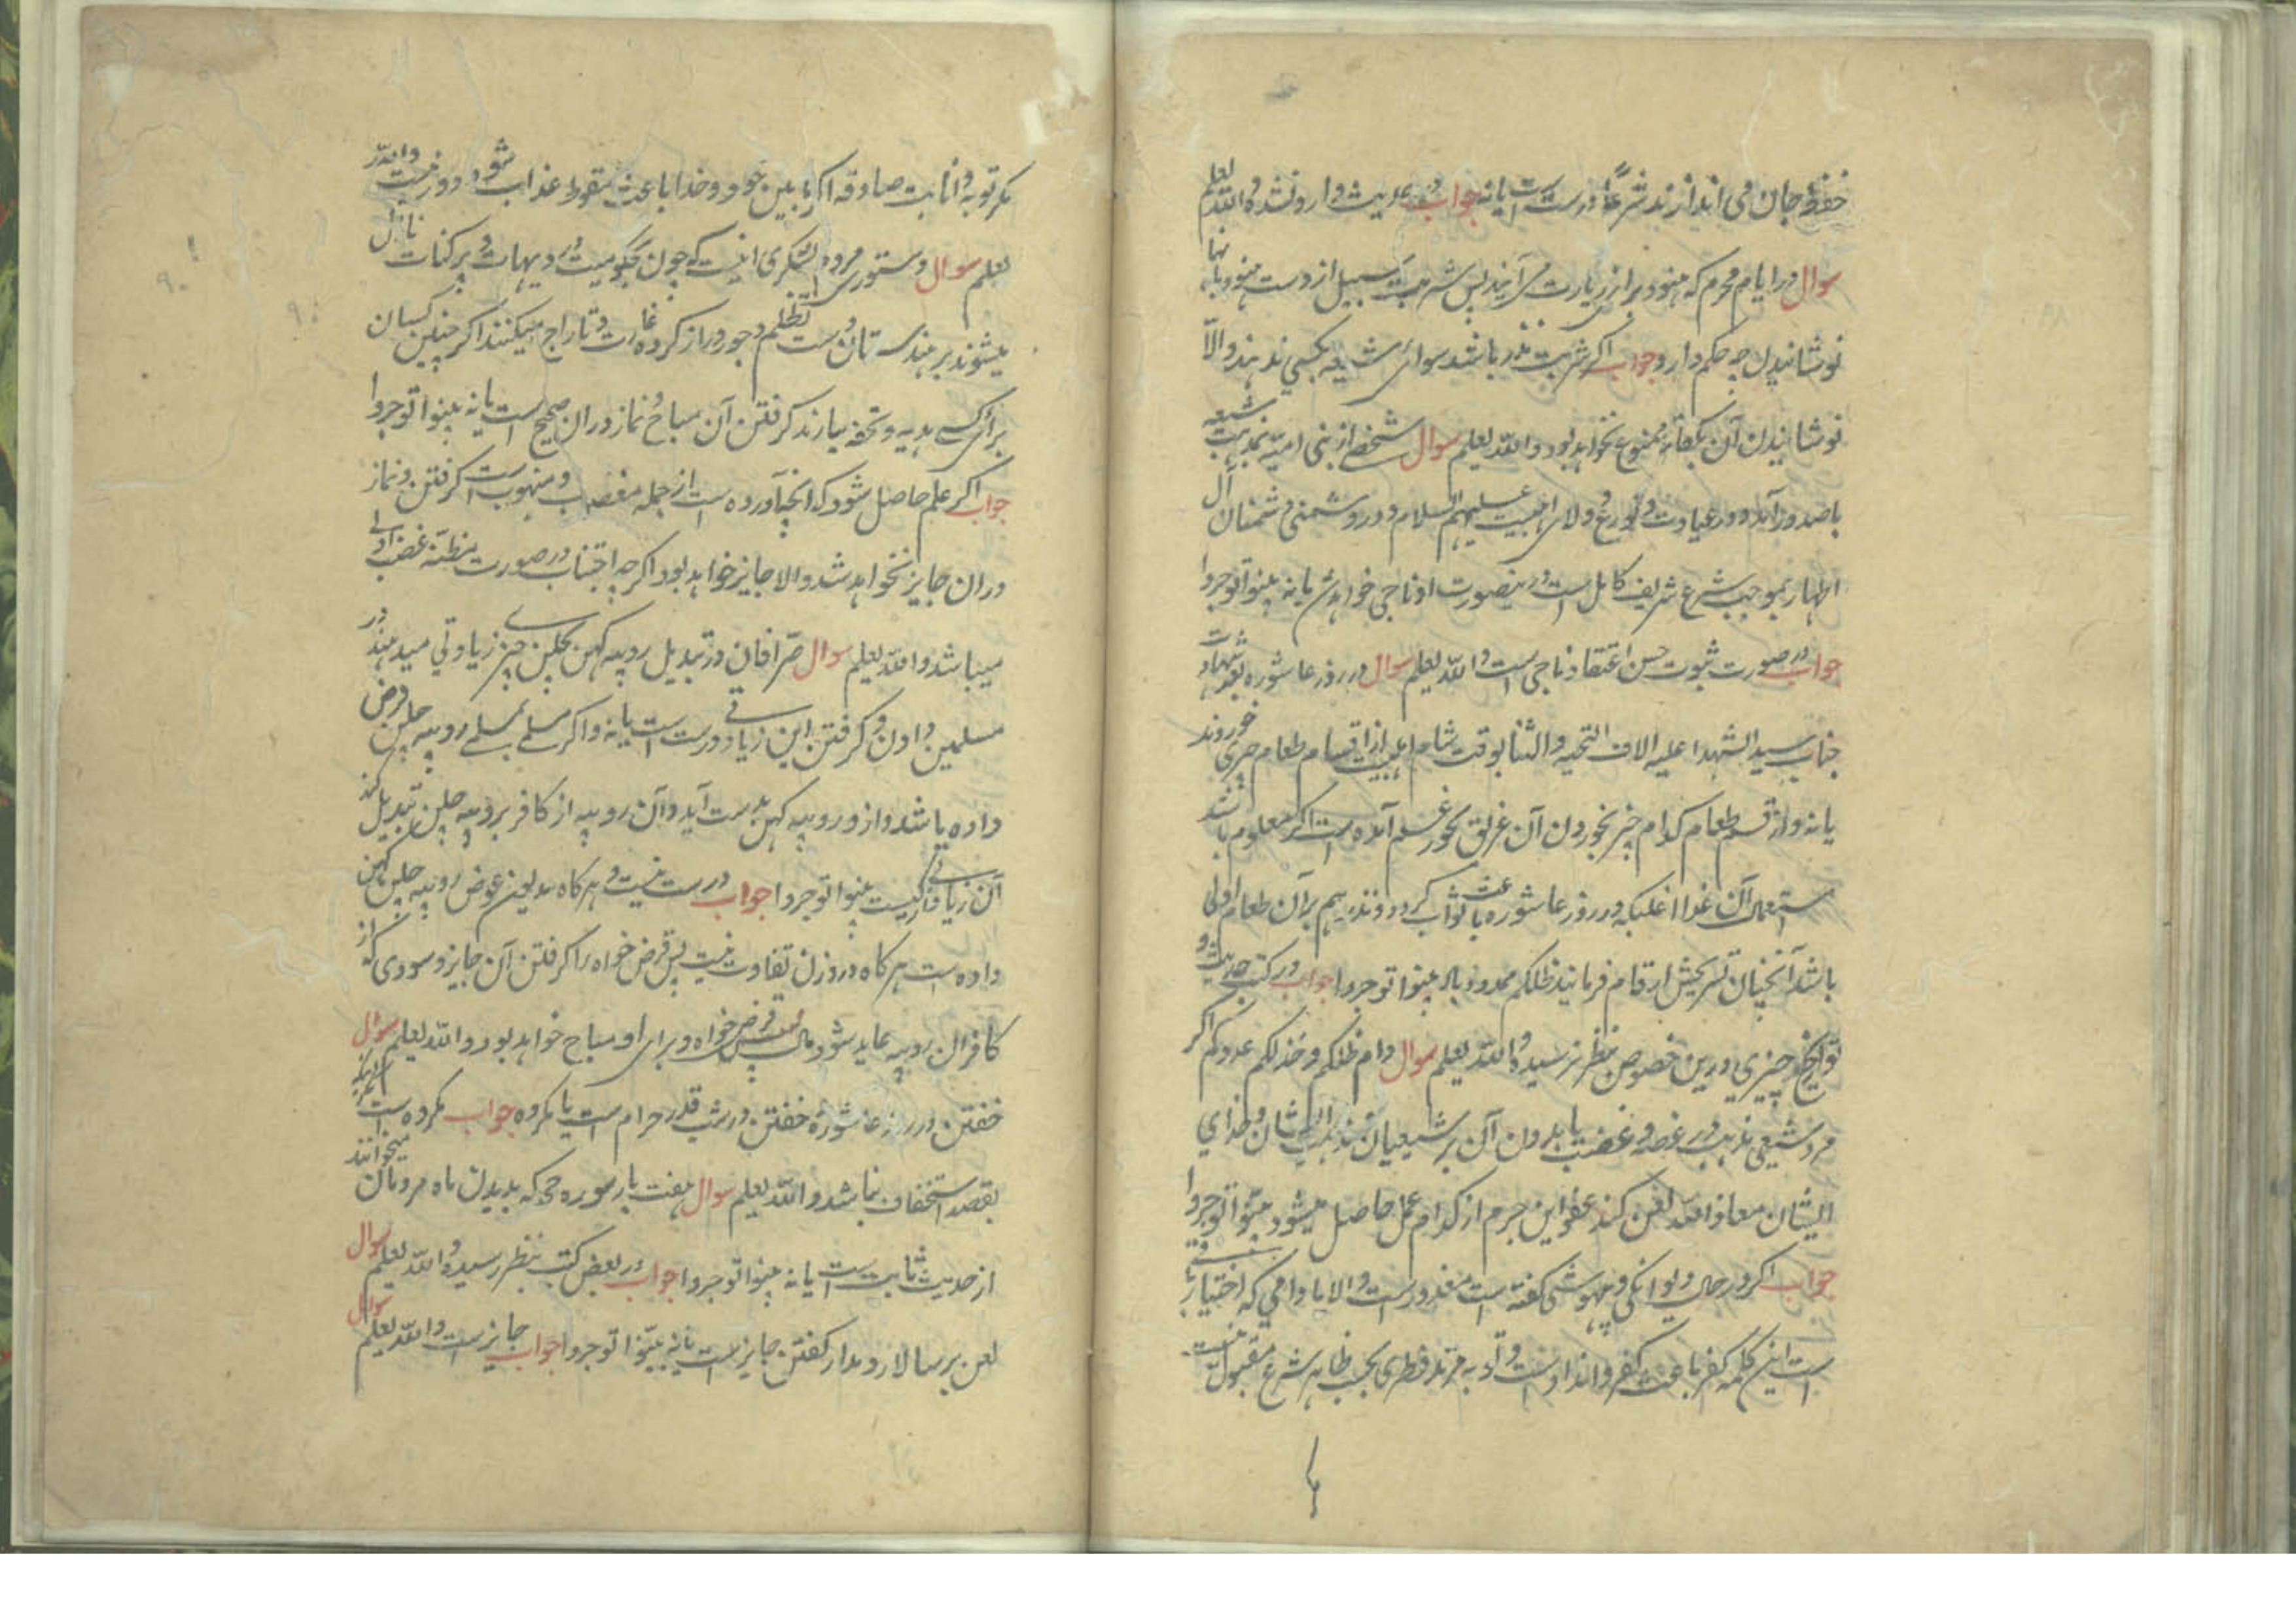 حفظ جان می اندازند شرعاً درست است یا نه جواب در حدیث وارد نشده والله یعلم
سوال در ایام محرم که هنود برای زیارت می آیند پس شربت سبیل از دست هنود بآنها
نوشانیدن چه حکم دارد جواب اگر شربت نذر باشد سوای شیعه بکسی ندهند والا
نوشانیدن آن بکفار ممنوع نخواهد بود والله یعلم سوال شخصی از بنی امیه بمذهب شیعه
باشد و زاهد و در عبادت و تورع و ولای اهلبیت علیهم السلام و در دشمنی دشمنان آل
اطهار بموجب شرع شریف کامل است درینصورت او ناجی خواهد شد یا نه بینوا توجروا
جواب در صورت ثبوت حسن اعتقاد ناجی است والله یعلم سوال در روز عاشوره بعد شهادت
جناب سید الشهدا علیه الاف التحیه والثنا بوقت شام اهلبیت از اقسام طعام چیزی خوردند
یا نه و از قسم طعام کدام چیز بخوردن آن غریق بحور غم آمده است اگر معلوم باشد
استعمال آن غذا اغلبکه در روز عاشوره باعث ثواب گردد و تقدیم بر آن طعام اولی
باشد آنچنان تشریحش ارقام فرمایند ظلکم ممدود باد بینوا توجروا جواب در کتب حدیث و
تواریخ چیزی درین خصوص بنظر نرسیده والله یعلم سوال دام ظلکم و خذلکم عدوکم اگر
مرد شیعی مذهب در غصه و غضب یا بدون آن بر شیعیان و مذهب ایشان و خدای
ایشان معاذ الله لعن کند عفو این جرم از کدام عمل حاصل میشود بینوا توجروا
جواب اگر در حال دیوانگی و بیهوشی گفته است معذور است والا مادامی که اختیار باقی
است این کلمه کفر باعث کفر و ارتداد است و توبه مرتد فطری بحسب ظاهر شرع مقبول نیست
مگر توبه و انابت صادقه اگر مابین خود و خدا باعث سقوط عذاب شود دور نیست والله
یعلم سوال دستوری مردم لشکری اینست که چون بحکومیت در دیهات و پرگنات نازل
میشوند بر هندستان دست تظلم و جور دراز کرده غارت و تاراج میکنند اگر چنین کسان
برای کسی هدیه و تحفه بیارند گرفتن آن مباح و نماز در ان صحیح است یا نه بینوا توجروا
جواب اگر علم حاصل شود که آنچه آورده است از جمله مغصوب و منهوب است گرفتن و نماز
در ان جایز نخواهد شد والا جایز خواهد بود اگرچه اجتناب در صورت مظنه غصب اولی
میباشد والله یعلم سوال صرافان در تبدیل روپیه کهن بچلن چیزی زیادتی میدهند در
مسلمین دادن و گرفتن این زیادتی درست است یا نه و اگر مسلمی بمسلمی روپیه چلن قرض
داده باشد و از و روپیه کهن بدست آید و آن روپیه از کافر بروپیه چلن تبدیل کند
آن زیادتی از کیست بینوا توجروا جواب درست نیست و هرگاه مدیون عوض روپیه چلن کهن
داده است هرگاه در وزن تفاوت نیست پس قرض خواه را گرفتن آن جایز و سودی که از
کافر ان روپیه عاید شود مال قرض خواه و برای او مباح خواهد بود والله یعلم سوال
خفتن در روز عاشوره و خفتن در شب قدر حرام است یا مکروه جواب مکروه است اگر
بقصد استخفاف نباشد والله یعلم سوال هفت بار سوره حم که بدیدن ماه مردمان میخوانند
از حدیث ثابت است یا نه بینوا توجروا جواب در بعض کتب بنظر رسیده والله یعلم سوال
لعن بر سالار و مدار گفتن جایز است یا نه بینوا توجروا جواب جایز است والله یعلم سوال